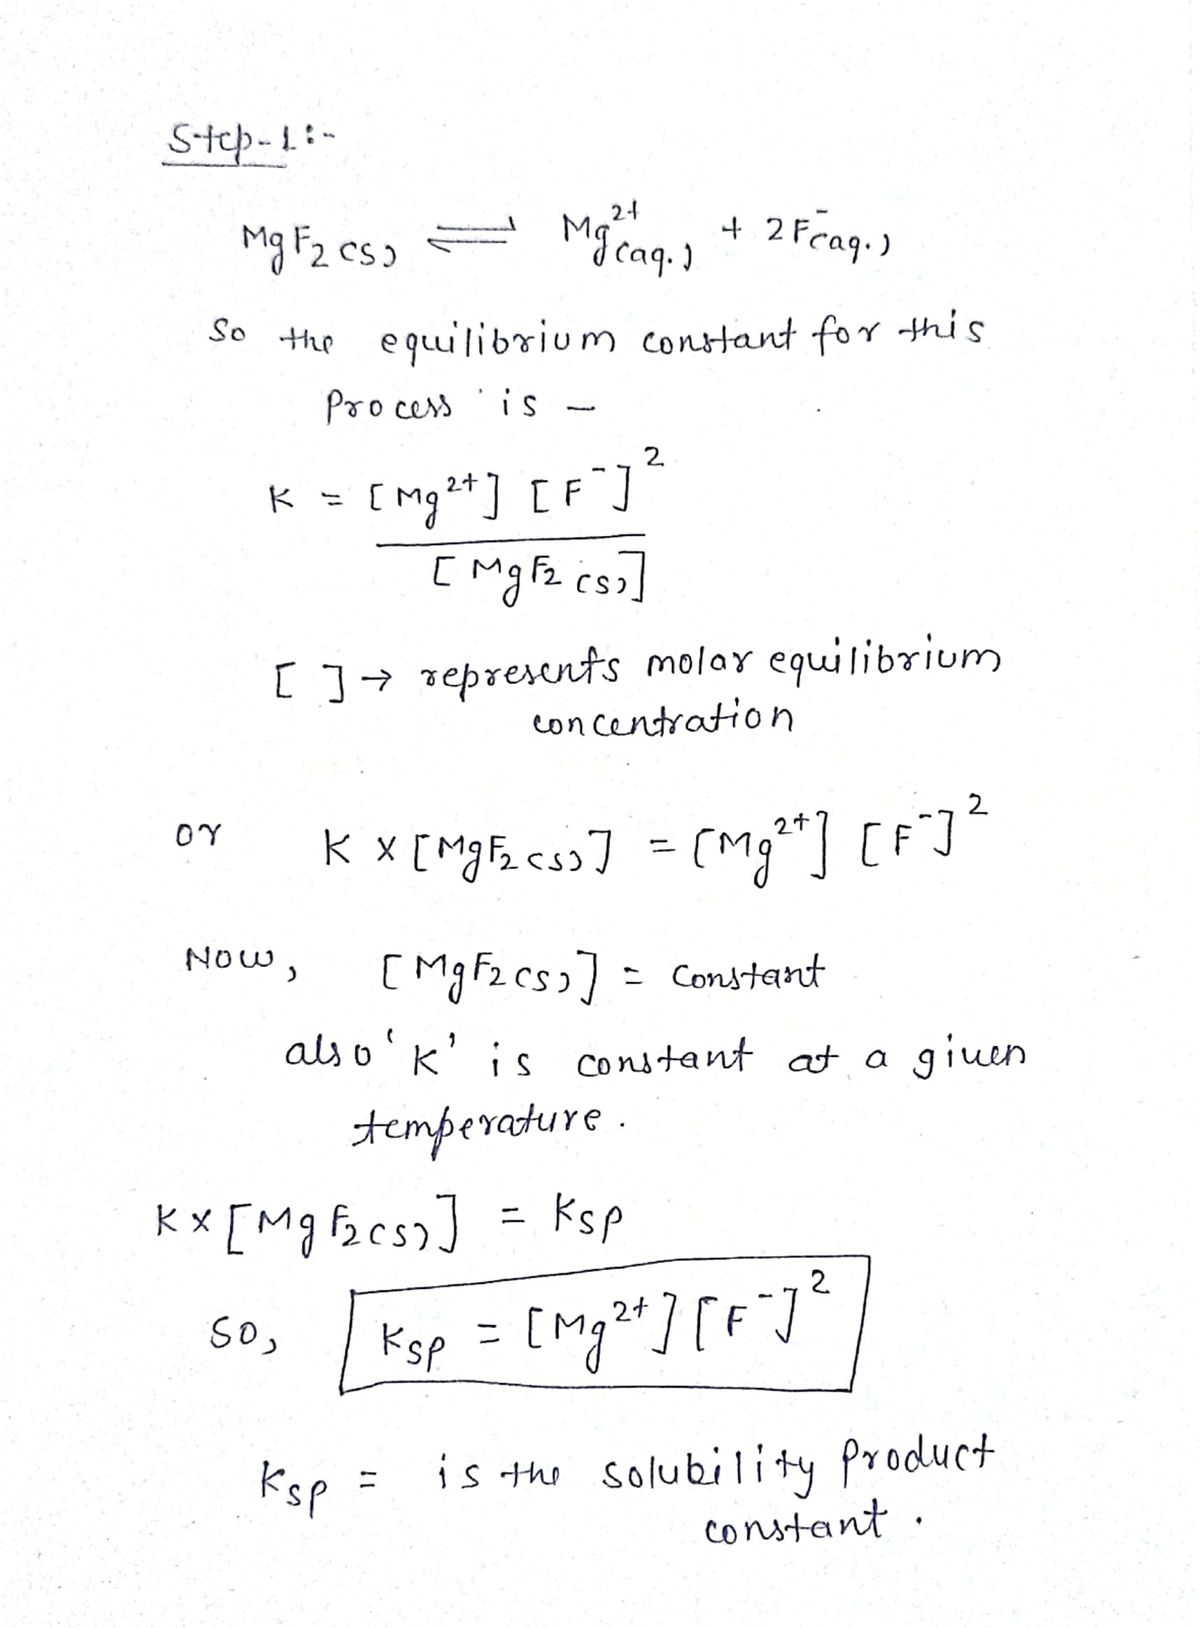 Step-1:-
MgF₂(s) ⇌ Mg²⁺(aq.) + 2F⁻(aq.)
So the equilibrium constant for this
Process is –
K = [Mg²⁺] [F⁻]²
[MgF₂(s)]
[ ] → represents molar equilibrium
concentration
or K × [MgF₂(s)] = [Mg²⁺] [F⁻]²
Now, [MgF₂(s)] = constant
also 'K' is constant at a given
temperature.
K × [MgF₂(s)] = Ksp
So, Ksp = [Mg²⁺] [F⁻]²
Ksp = is the solubility Product
constant.